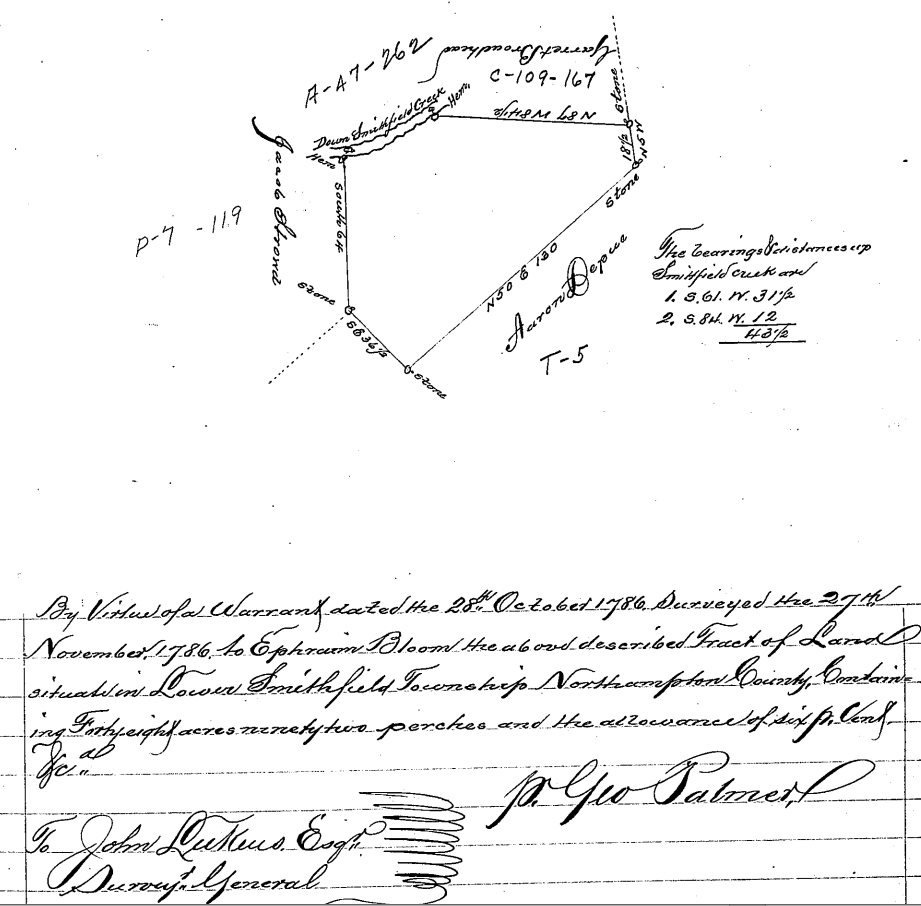 A-47-262
Garret Broadhead
C-109-167
Down Smithfield Creek
Hem.
Hem
N87 W 84½
Stone
18½
N5W
Stone
Jacob Stroud
P-7 -119
South 64
N50 E 130
Aaron Depue
T-5
Stone
Stone
The bearings & distances up
Smithfield creek are
1. S.61. W. 31½
2. S.84. W. 12
43½
By Virtue of a Warrant dated the 28th October 1786, Surveyed the 27th
November, 1786, to Ephraim Bloom the above described Tract of Land
situate in Lower Smithfield Township Northampton County, Contain=
ing Forty eight acres ninety two perches and the allowance of six p. Cent
&c.
p. Geo Palmer,
To John Lukens Esqr.
Survey.r General